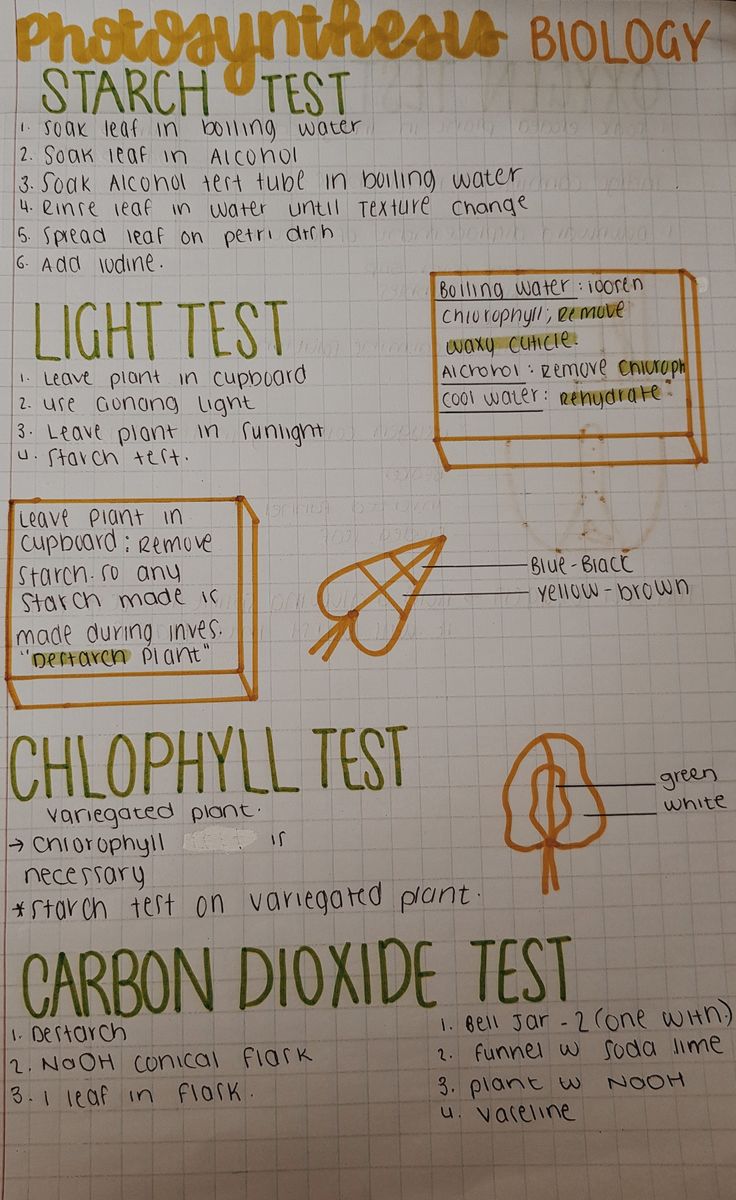 Photosynthesis BIOLOGY
STARCH TEST
1. Soak leaf in boiling water
2. Soak leaf in Alcohol
3. Soak Alcohol test tube in boiling water
4. Rinse leaf in water until texture change
5. Spread leaf on petri dish
6. Add iodine.
Boiling water: loosen
chlorophyll; Remove
waxy cuticle.
Alchohol: Remove chloroph
cool water: Rehydrate
LIGHT TEST
1. Leave plant in cupboard
2. use light
3. Leave plant in sunlight
4. Starch test.
Leave plant in
cupboard: Remove
starch. so any
starch made is
made during inves.
"Destarch plant"
Blue-Black
yellow-brown
CHLOPHYLL TEST
variegated plant.
→ Chlorophyll is
necessary
*starch test on variegated plant.
green
white
CARBON DIOXIDE TEST
1. Destarch
2. NaOH conical flask
3. 1 leaf in flask.
1. Bell Jar - 2 (one with.)
2. funnel w soda lime
3. plant w NaOH
4. vaseline